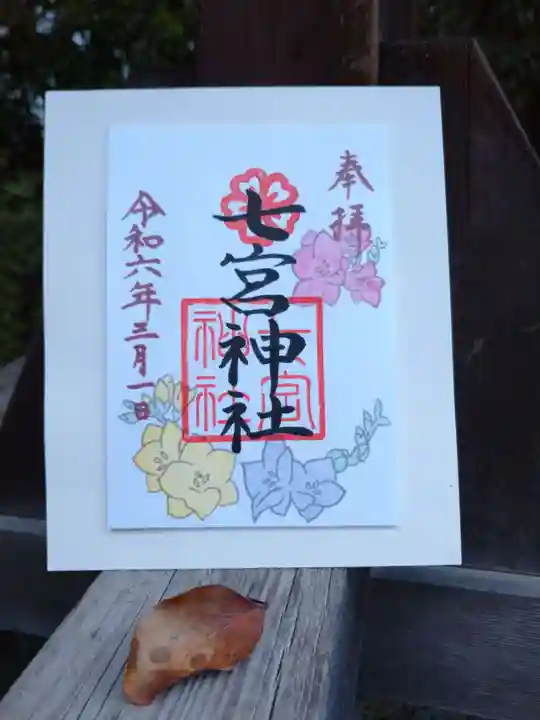 奉拝
七宮神社
七宮
神社
令和六年三月一日